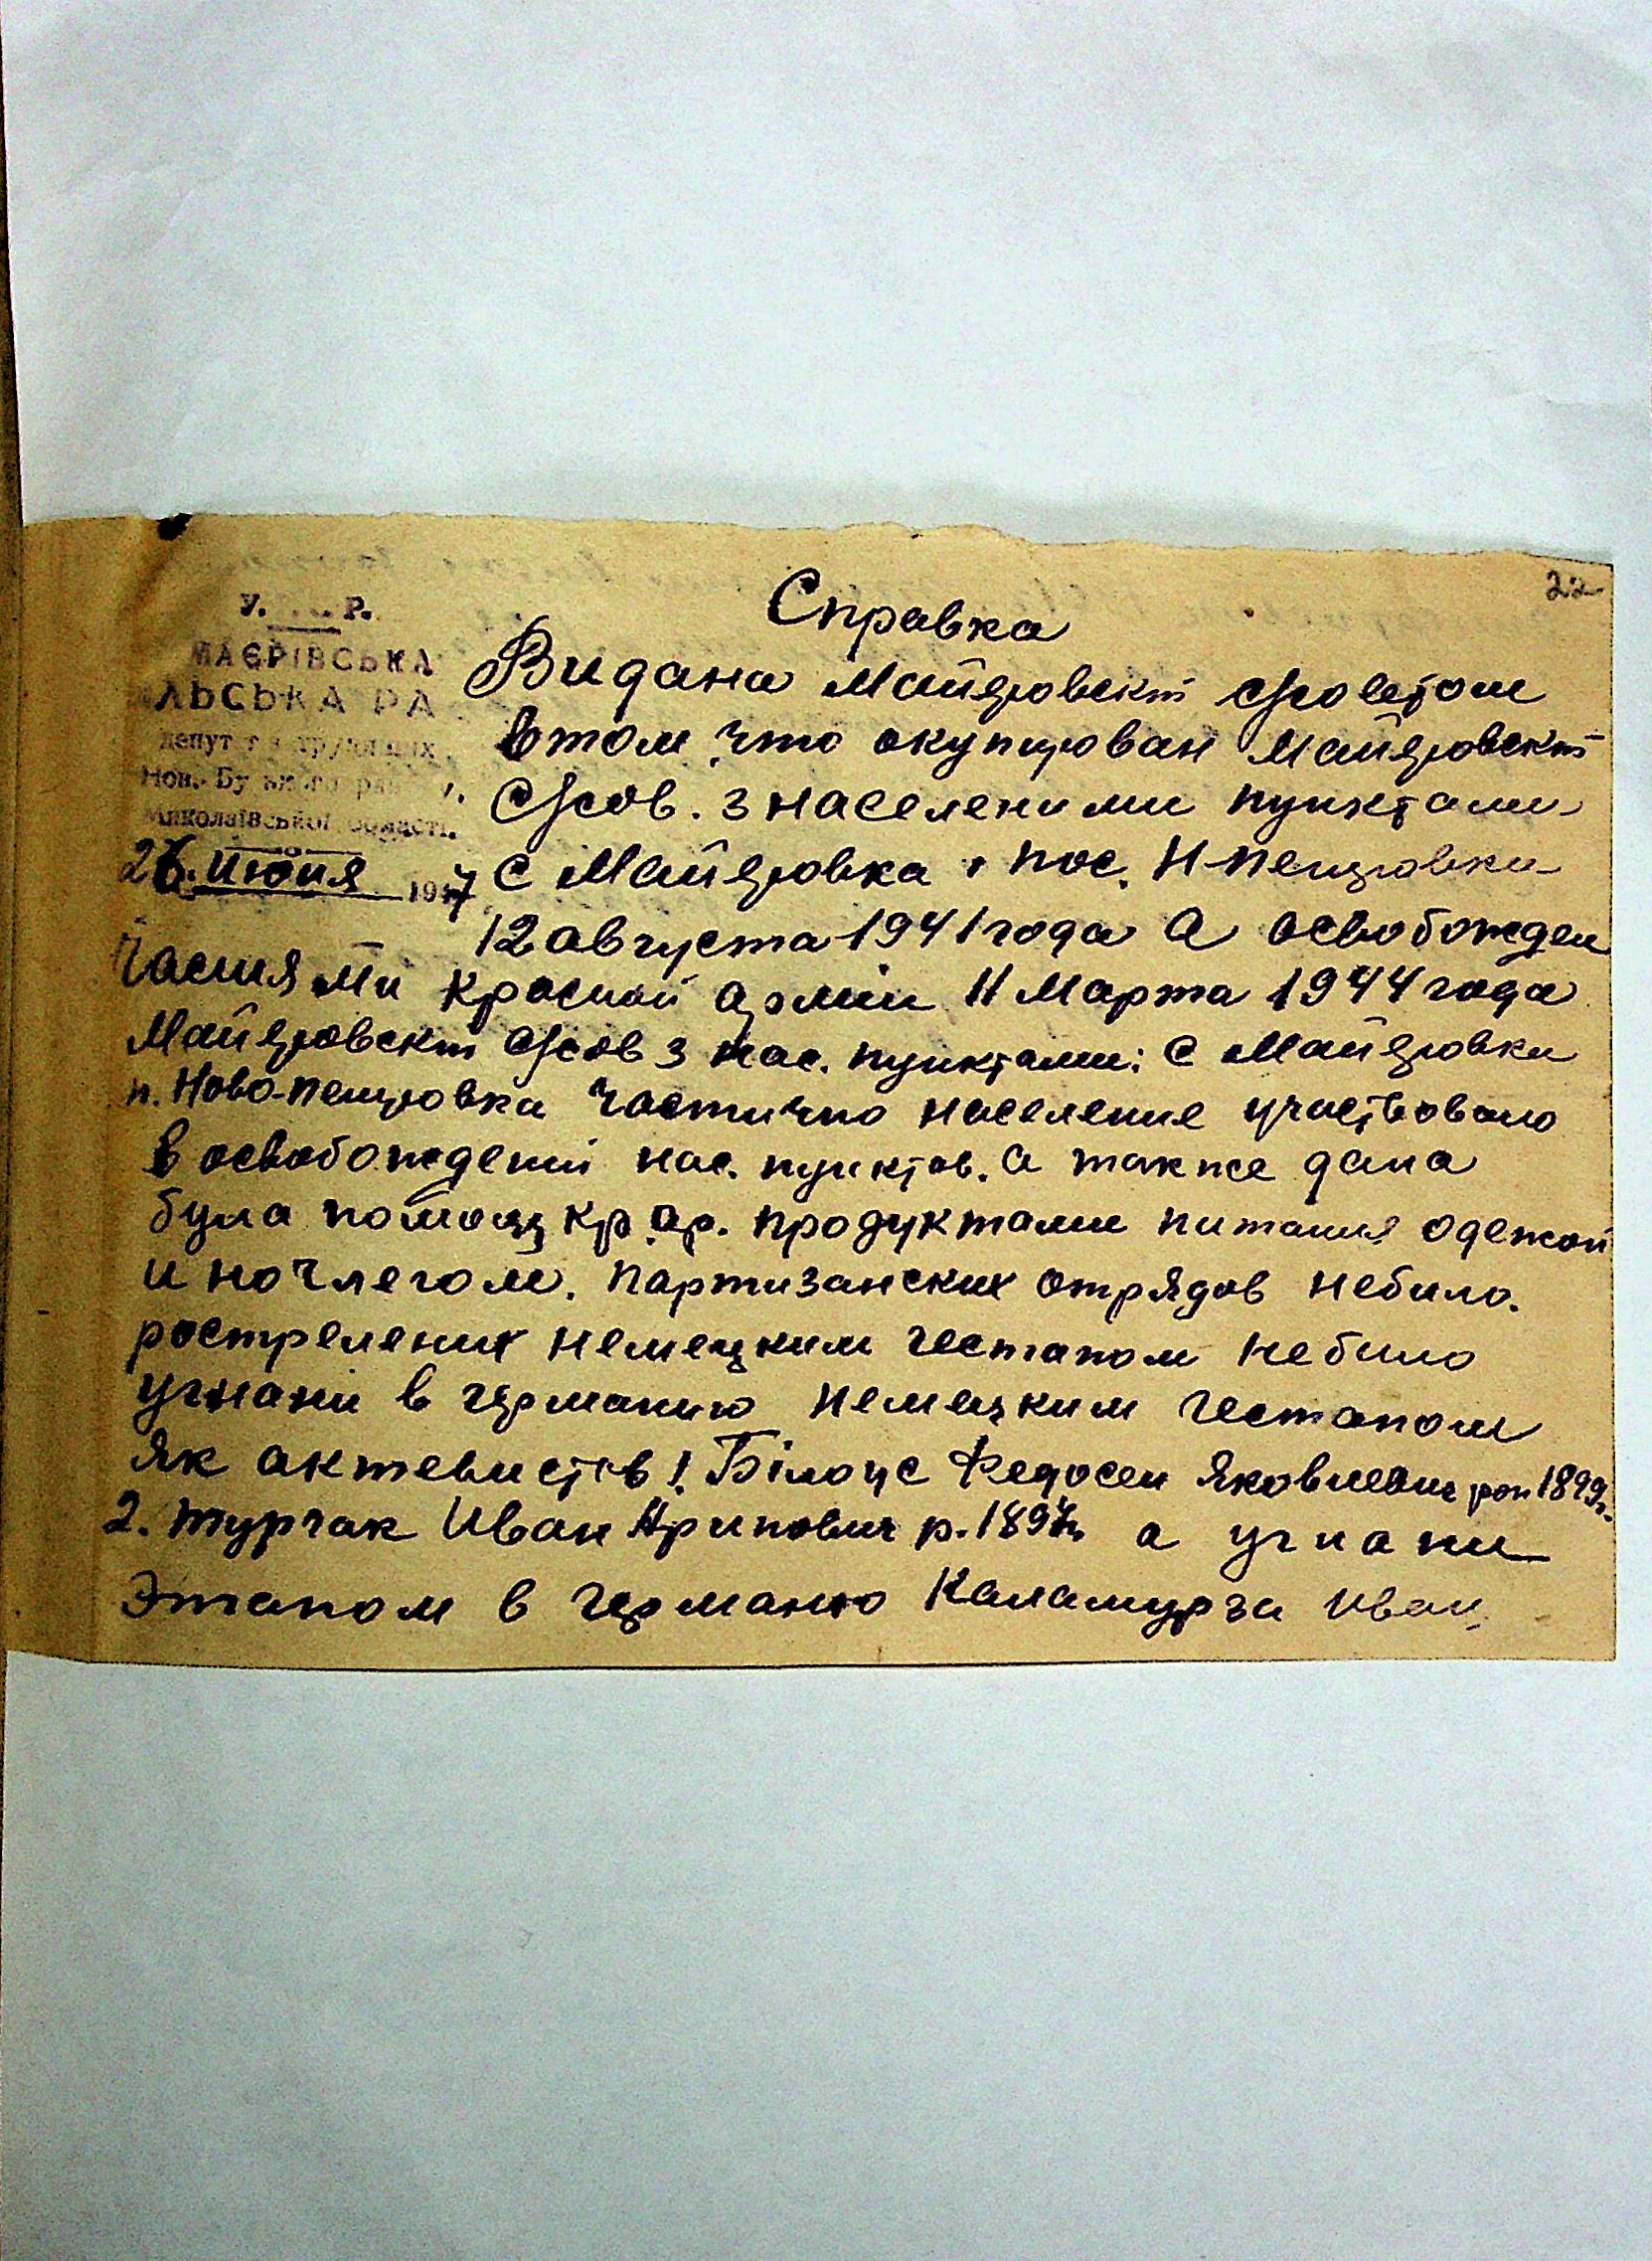 22
Справка
У. Р.
МАЄРІВСЬКА
ЛЬСЬКА РА
депут
Нов. Бу
Миколаївської області.
26. Июня 1947
Видана Майеровским с/советом
втом, что окупирован Майеровский
С/сов. з населеними пунктами
С Майеровка, пос. Н-Петровки
12 августа 1941 года А освобожден
Частями Красной армии 11 Марта 1944 года
Майеровский С/сов з нас. пунктами: С Майеровки
п. Ново-Петровка Частично население участвовало
в освобождении нас. пунктов. а также дана
була помощ кр. ар. продуктами питания одежой
и ночлегом. партизанских отрядов небило.
рострелених немецким гестапом небило
угнани в германию немецким гестапом
як актевистов 1. Білоус Федосей Яковлевич рож 1899г.
2. Турчак Иван Арипович р. 1897г. а угнани
Этапом в германю Каламурза Иван.